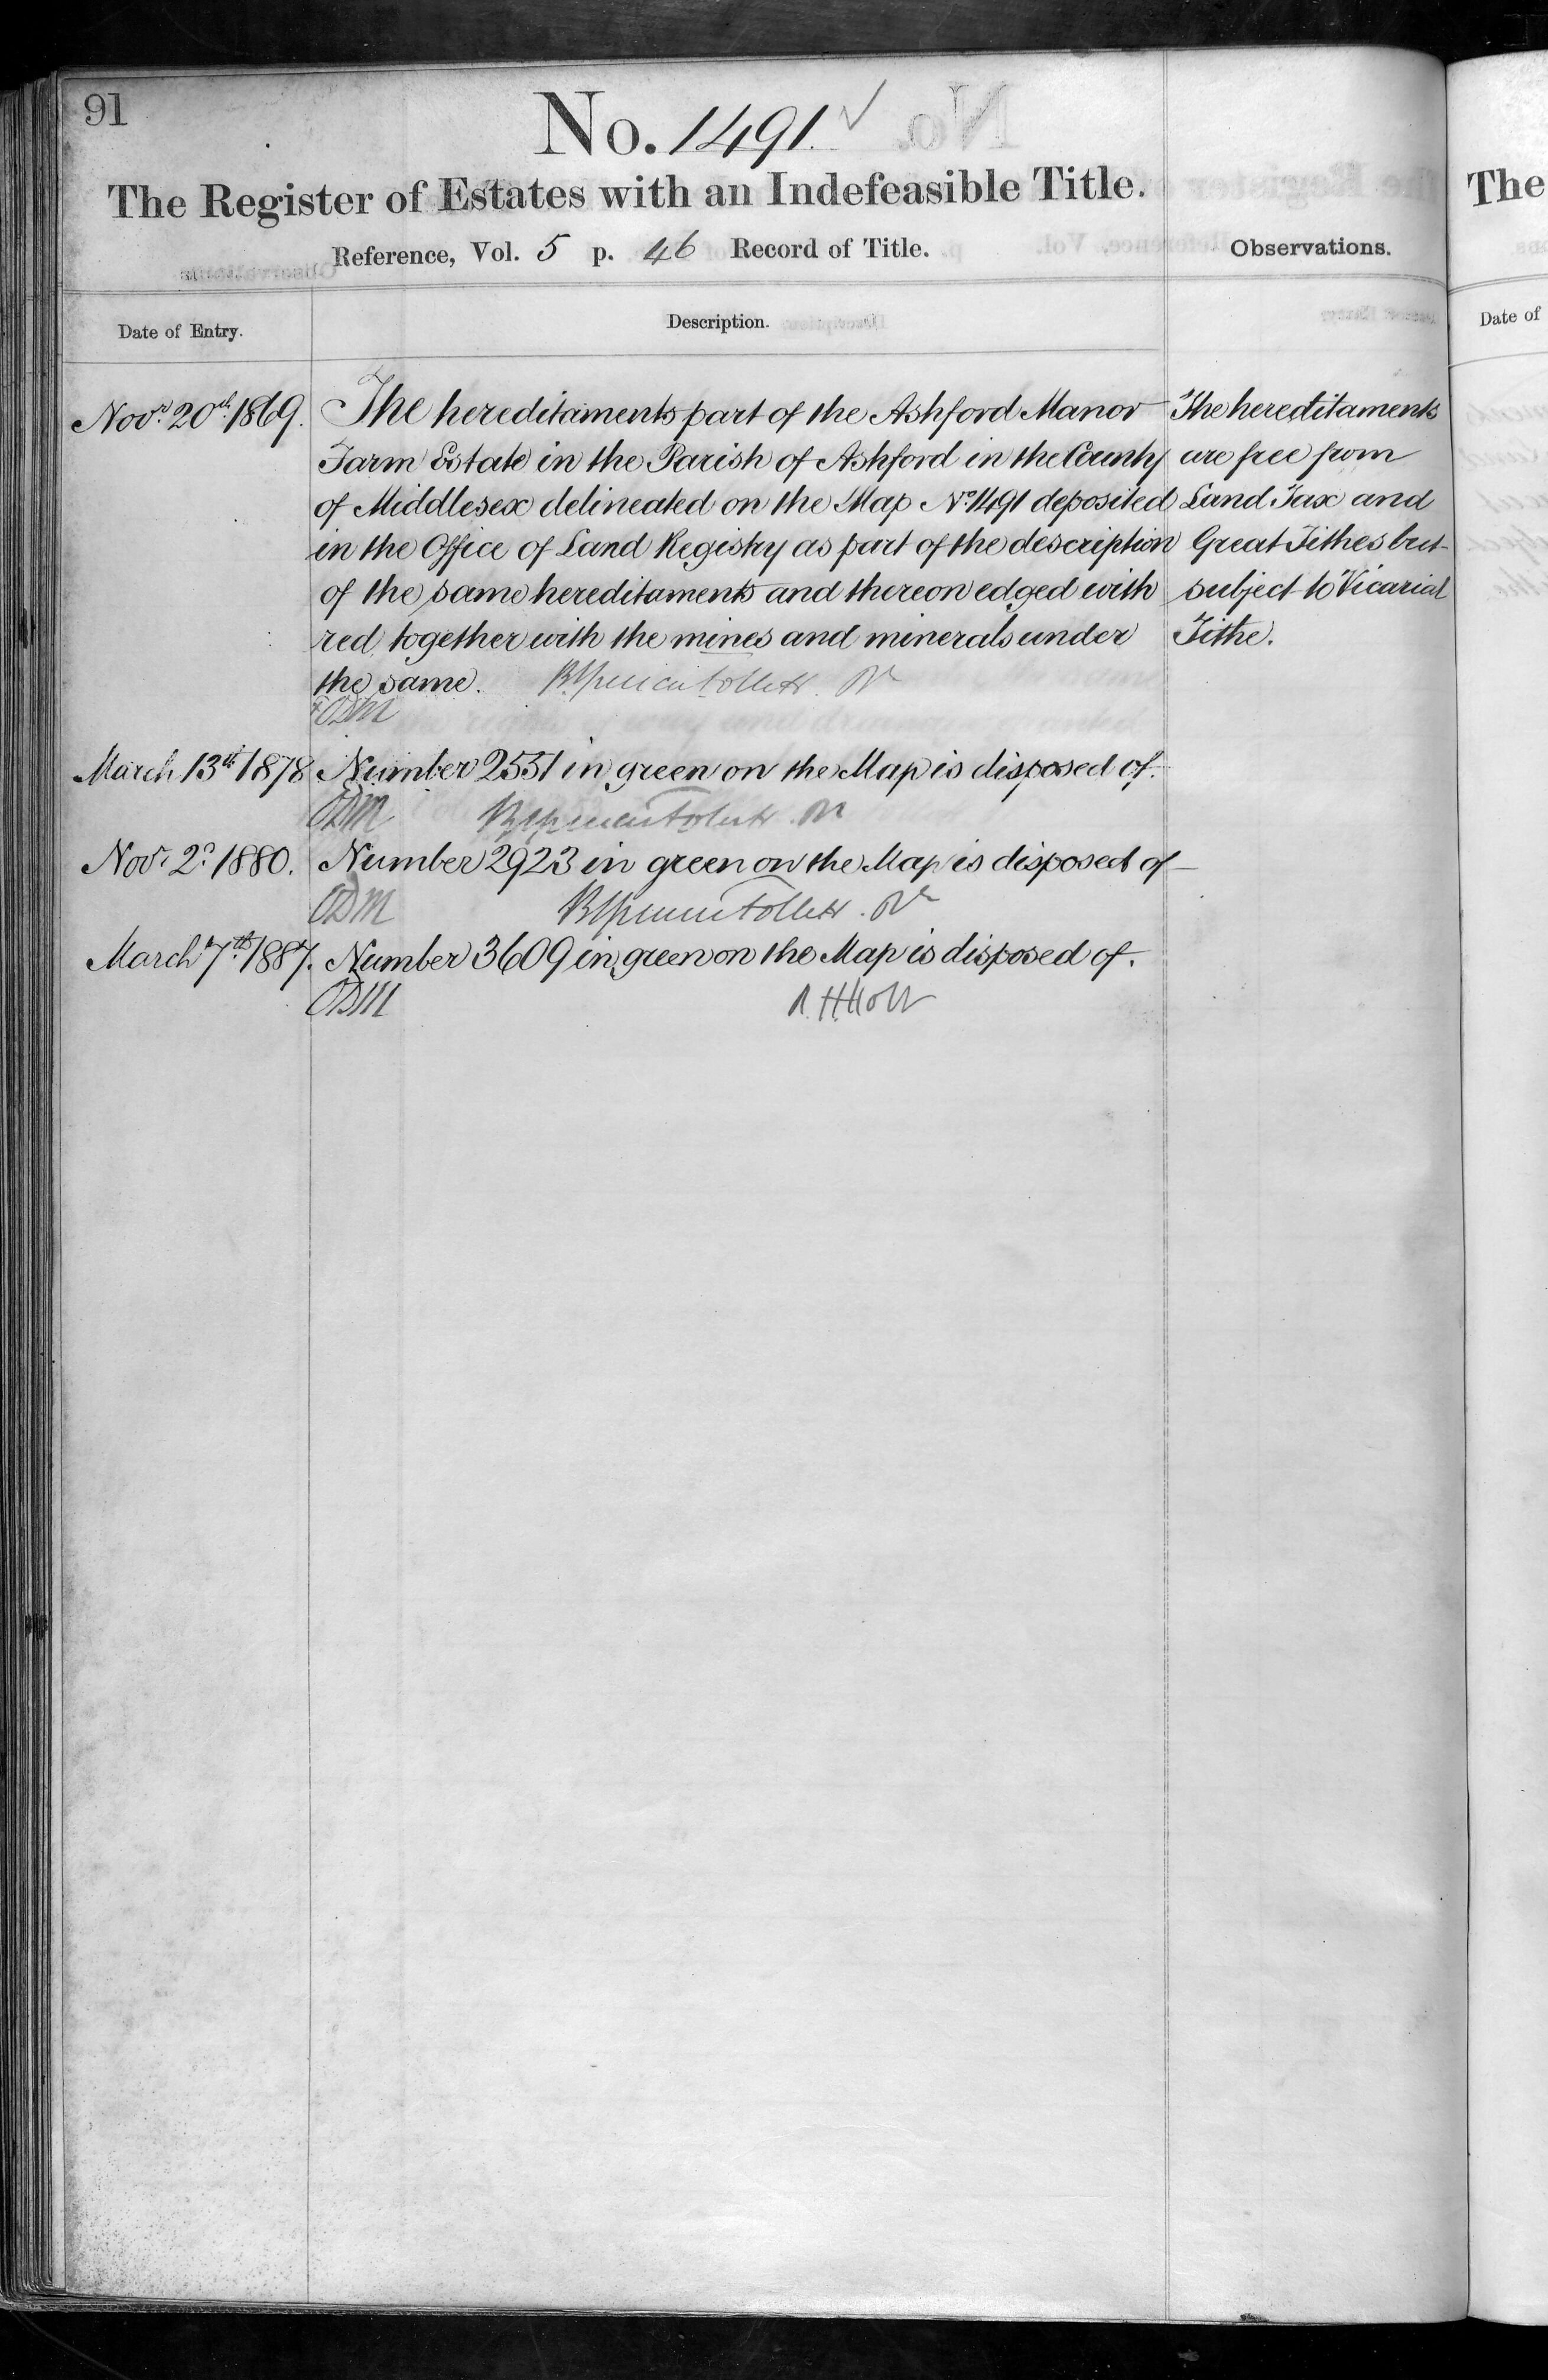 91
No. 1491
The Register of Estates with an Indefeasible Title.
Reference, Vol. 5 p. 46 Record of Title.
Observations.
Date of Entry.
Description.
Novr. 20th. 1869.
The hereditaments part of the Ashford Manor
Farm Estate in the Parish of Ashford in the County
of Middlesex delineated on the Map No. 1491 deposited
in the Office of Land Registry as part of the description
of the same hereditaments and thereon edged with
red together with the mines and minerals under
the same.
The hereditaments
are free from
Land Tax and
Great Tithes but
subject to Vicarial
Tithe.
March 13th 1878
Number 2531 in green on the Map is disposed of.
Novr. 2d 1880.
Number 2923 in green on the Map is disposed of
March 7th. 1887.
Number 3609 in green on the Map is disposed of.
R. H. Holt
The
Date of